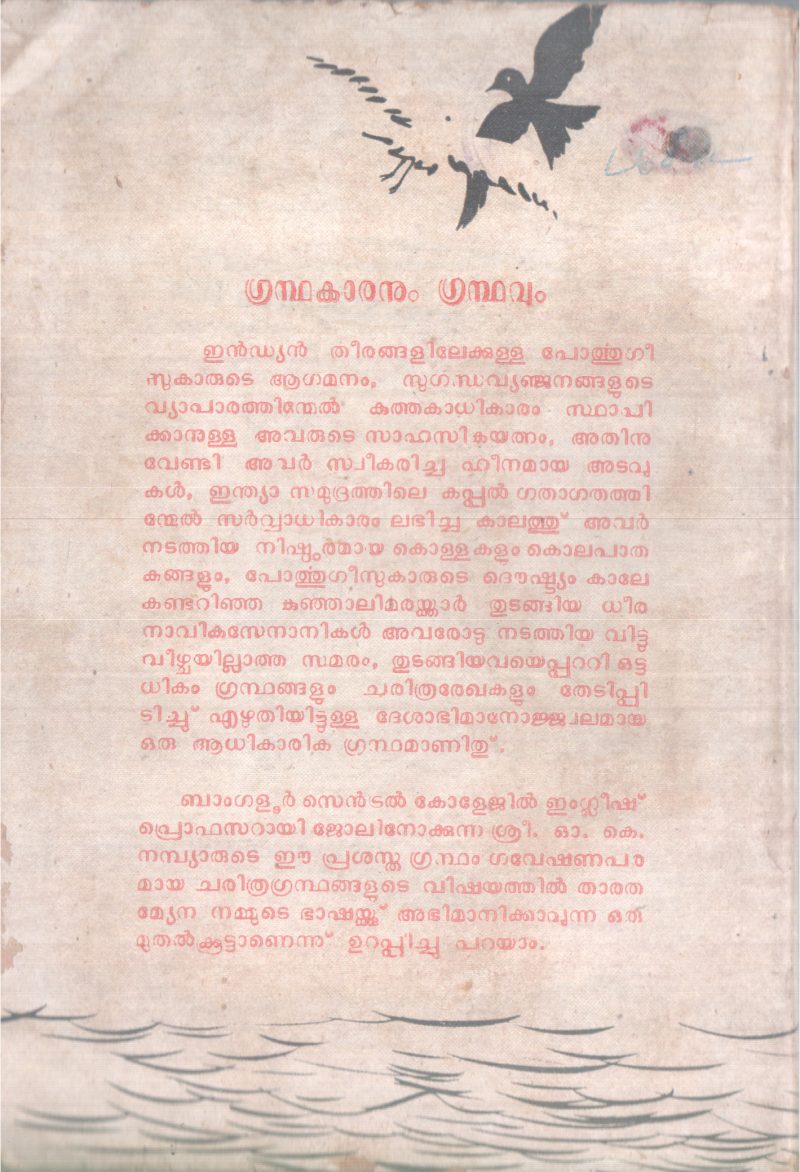 ഗ്രന്ഥകാരനും ഗ്രന്ഥവും
ഇൻഡ്യൻ തീരങ്ങളിലേക്കുള്ള പോർത്തുഗീ
സുകാരുടെ ആഗമനം, സുഗന്ധവ്യഞ്ജനങ്ങളുടെ
വ്യാപാരത്തിന്മേൽ കുത്തകാധികാരം സ്ഥാപി
ക്കാനുള്ള അവരുടെ സാഹസികയത്നം, അതിനു
വേണ്ടി അവർ സ്വീകരിച്ച ഹീനമായ അടവു
കൾ, ഇന്ത്യാ സമുദ്രത്തിലെ കപ്പൽ ഗതാഗതത്തി
ന്മേൽ സർവ്വാധികാരം ലഭിച്ച കാലത്തു് അവർ
നടത്തിയ നിഷ്ഠൂരമായ കൊള്ളകളും കൊലപാത
കങ്ങളും, പോർത്തുഗീസുകാരുടെ ദൌഷ്ട്യം കാലേ
കണ്ടറിഞ്ഞ കുഞ്ഞാലിമരയ്ക്കാർ തുടങ്ങിയ ധീര
നാവികസേനാനികൾ അവരോടു നടത്തിയ വിട്ടു
വീഴ്ചയില്ലാത്ത സമരം, തുടങ്ങിയവയെപ്പററി ഒട്ട
ധികം ഗ്രന്ഥങ്ങളും ചരിത്രരേഖകളും തേടിപ്പി
ടിച്ചു് എഴുതിയിട്ടുള്ള ദേശാഭിമാനോജ്ജ്വലമായ
ഒരു ആധികാരിക ഗ്രന്ഥമാണിതു്.
ബാംഗളൂർ സെൻട്രൽ കോളേജിൽ ഇംഗ്ലീഷ്
പ്രൊഫസറായി ജോലിനോക്കുന്ന ശ്രീ. ഓ. കെ.
നമ്പ്യാരുടെ ഈ പ്രശസ്ത ഗ്രന്ഥം ഗവേഷണപര
മായ ചരിത്രഗ്രന്ഥങ്ങളുടെ വിഷയത്തിൽ താരത
മ്യേന നമ്മുടെ ഭാഷയ്ക്കു് അഭിമാനിക്കാവുന്ന ഒരു
മുതൽക്കൂട്ടാണെന്നു് ഉറപ്പിച്ചു പറയാം.